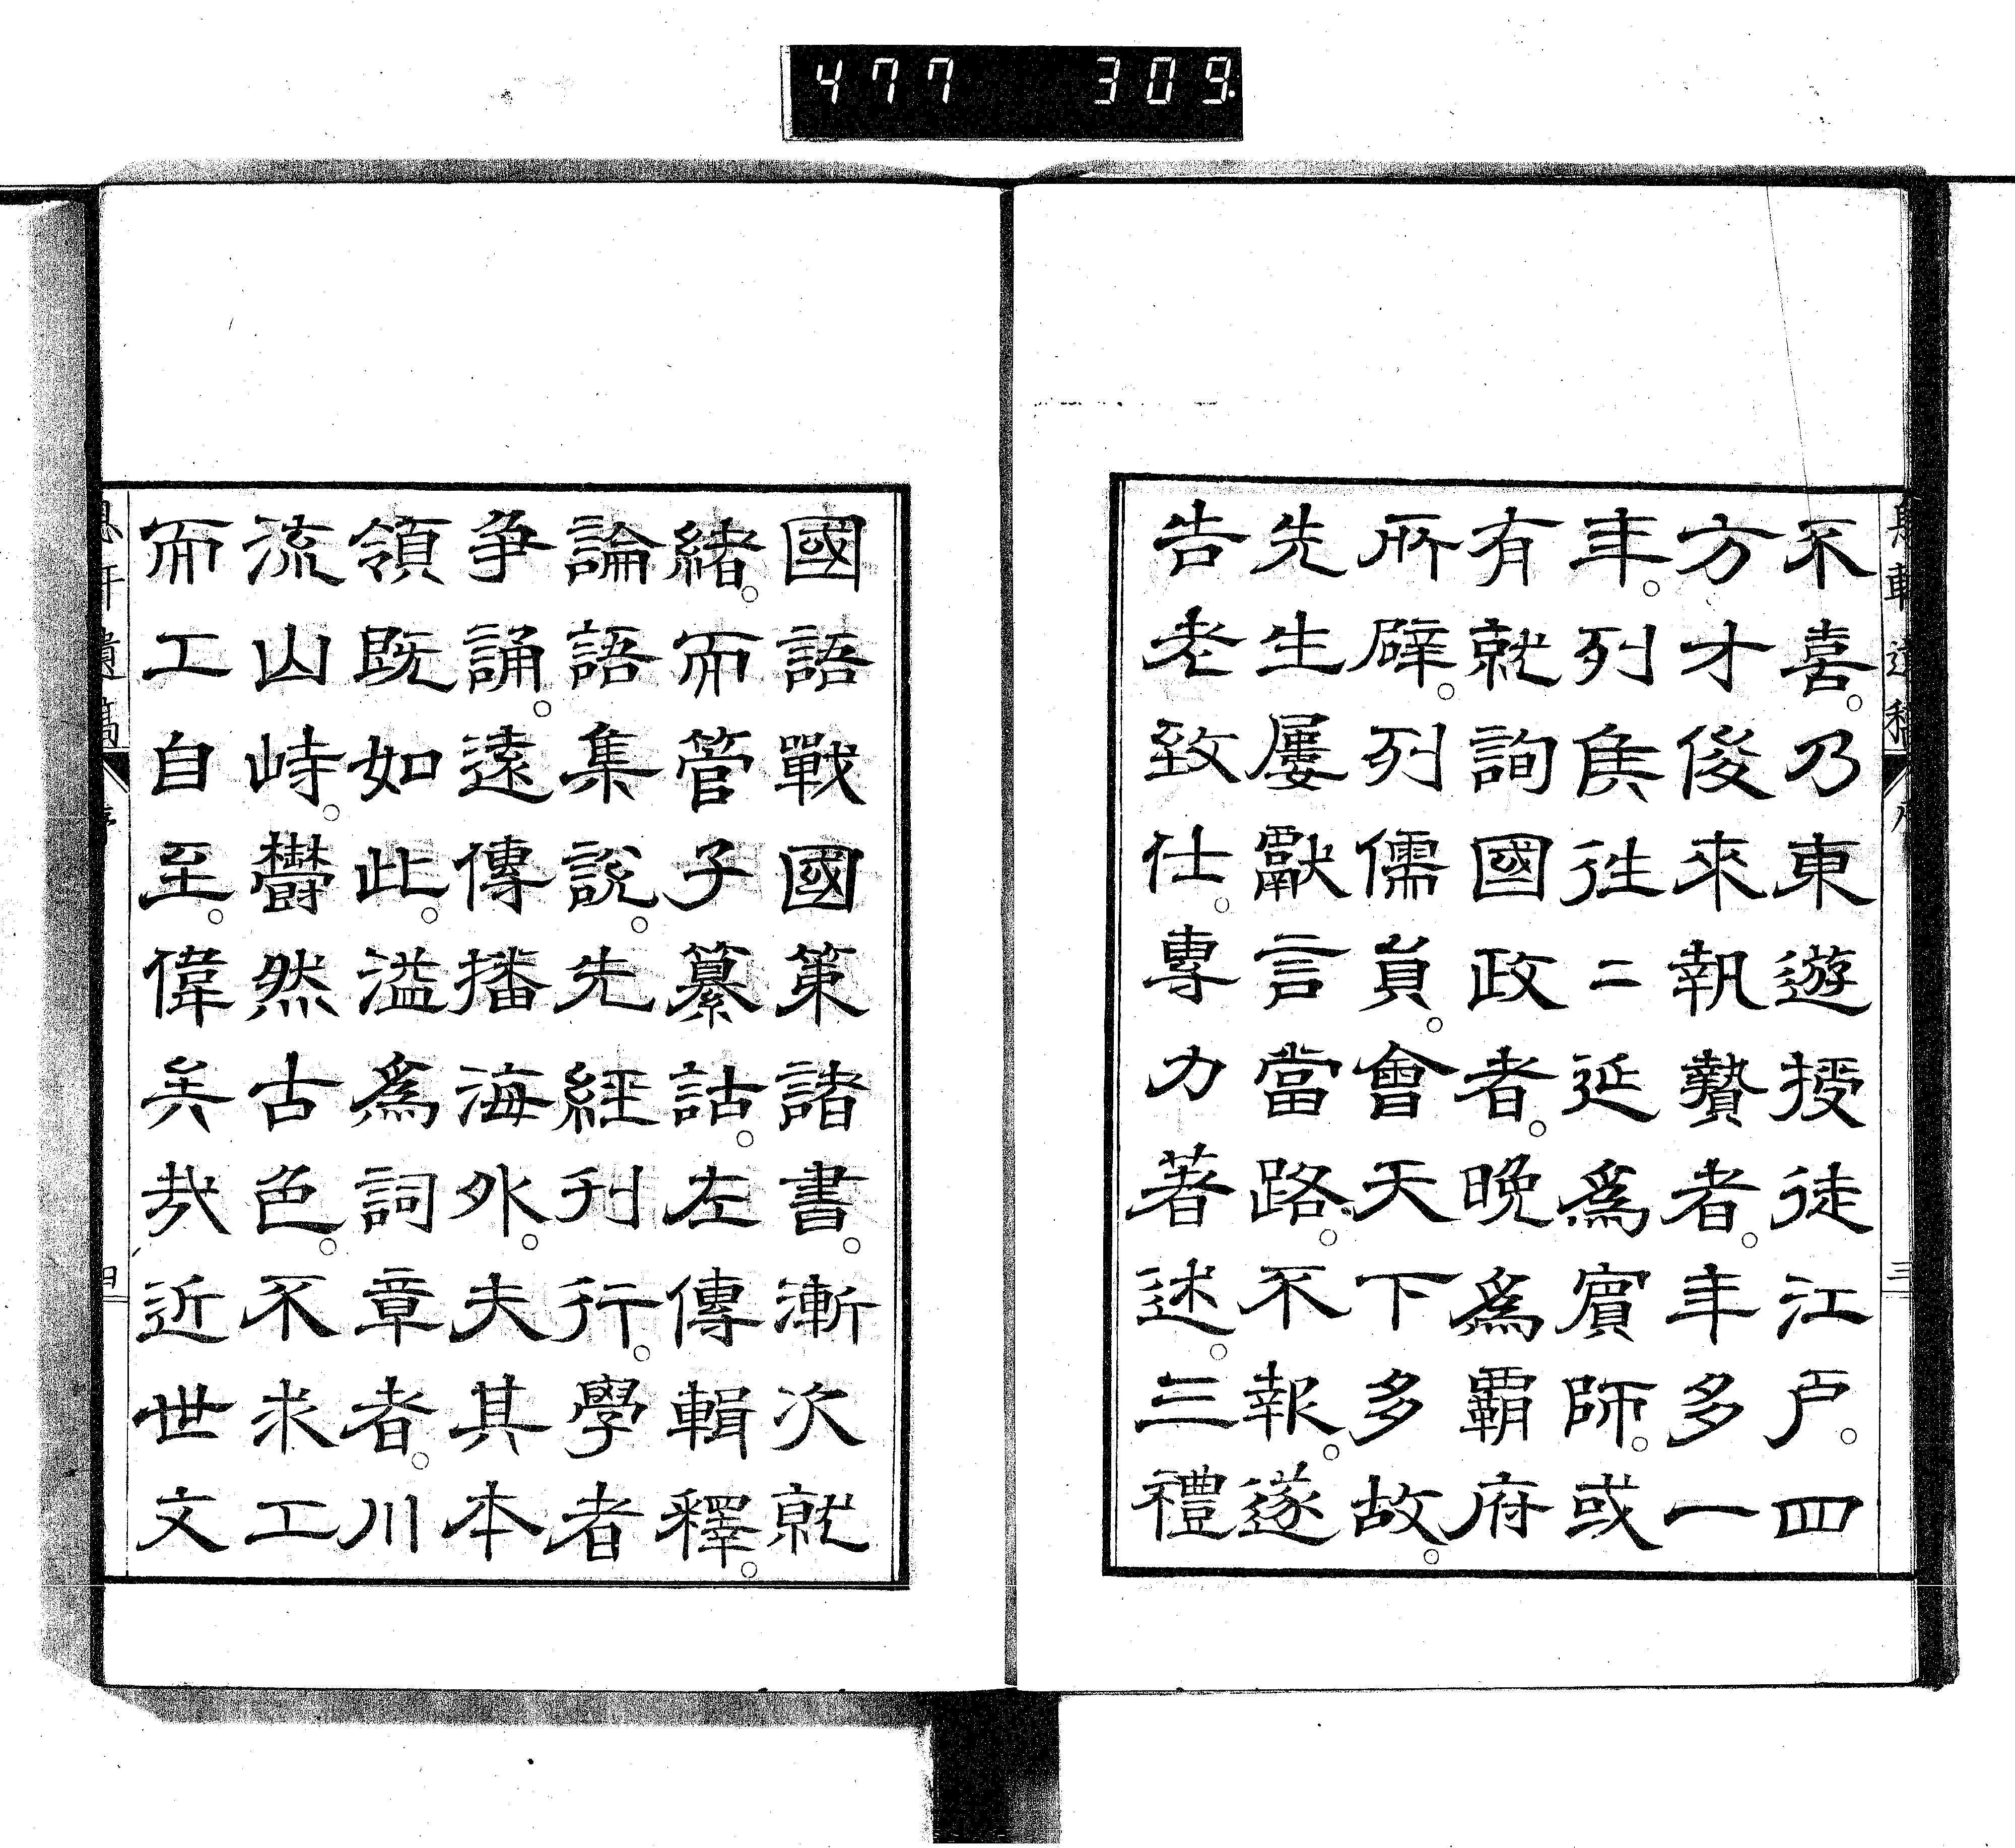 477 309
不喜。乃東遊授徒江戶。四
方才俊來執贄者。年多一
年。列矦徃〻延爲賓師。或
有就詢國政者。晚爲霸府
所辟。列儒員。會天下多故。
先生屢獻言當路。不報。遂
告老致仕。專力著述。三禮
國語戰國策諸書。漸次就
緒。而管子纂詁。左傳輯釋。
論語集說。先經刊行。學者
爭誦。遠傳播海外。夫其本
領旣如此。溢爲詞章者。川
流山峙。鬱然古色。不求工
而工自至。偉矣哉近世文
軒遺稿